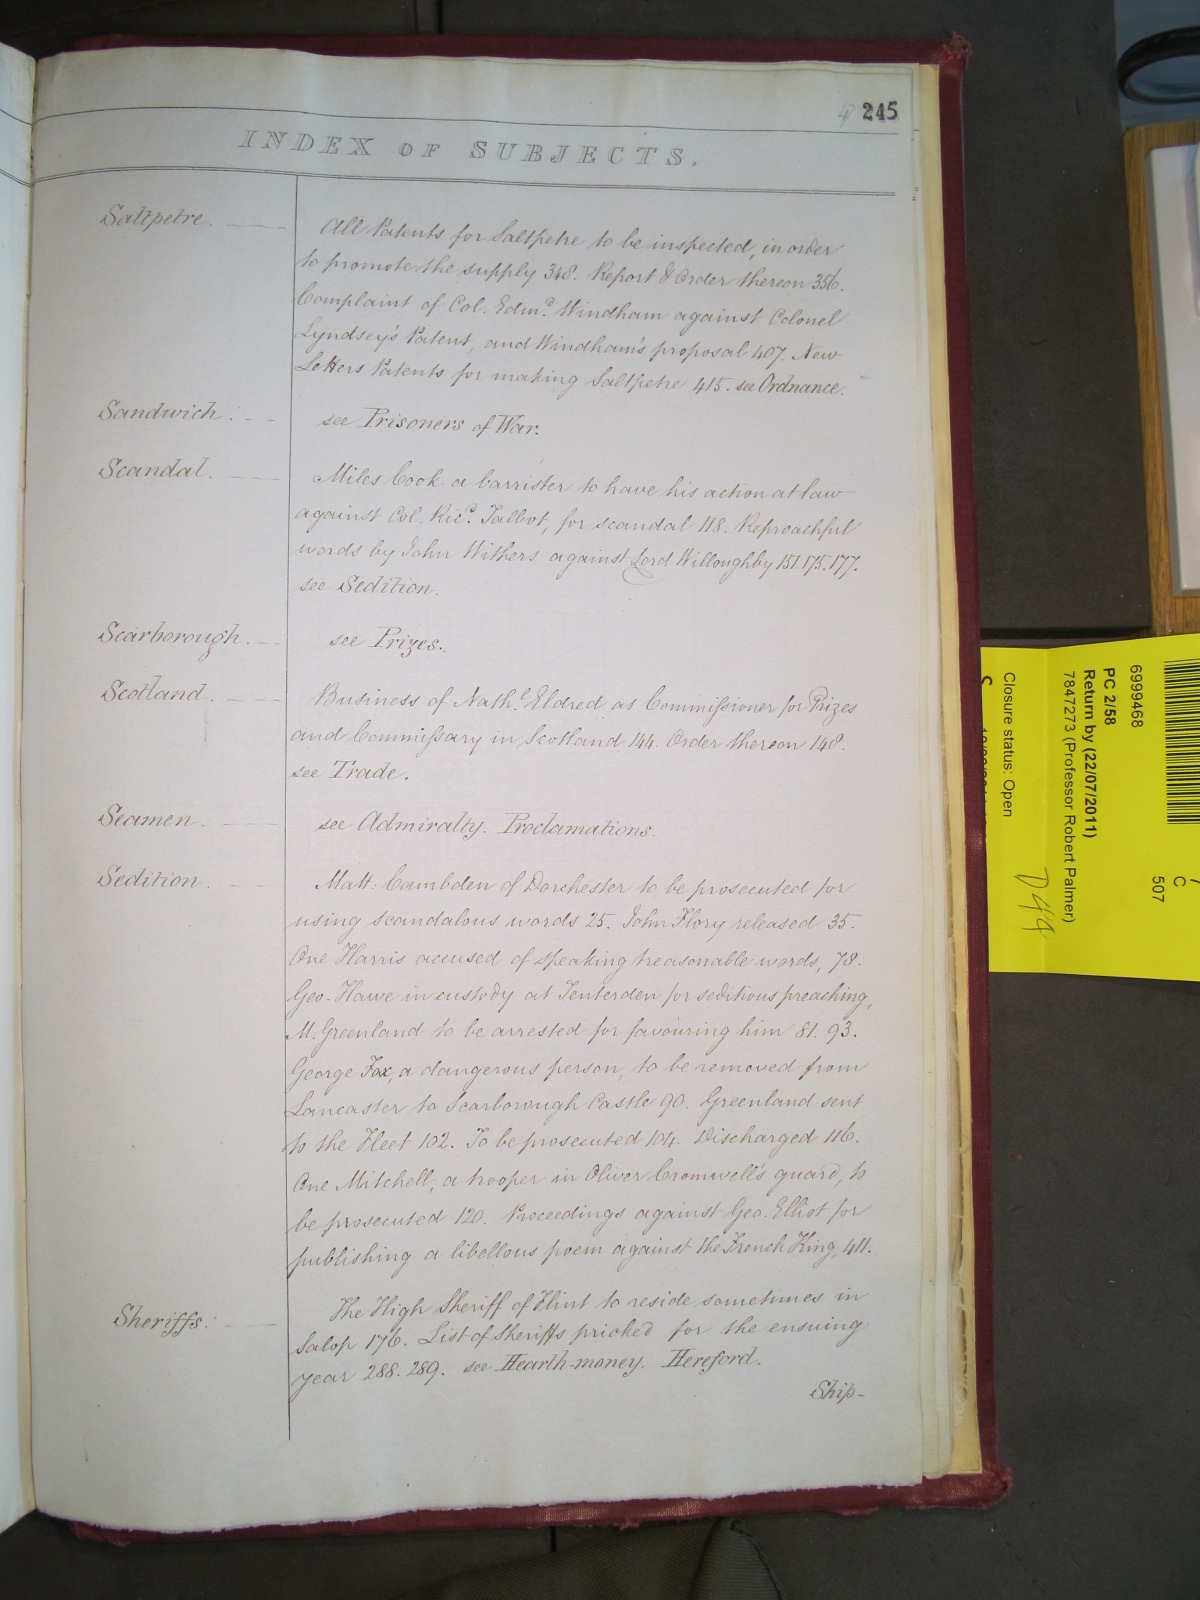 245
INDEX OF SUBJECTS.
Saltpetre.
All Patents for Saltpetre to be inspected, in order
to promote the supply 348. Report & Order thereon 356.
Complaint of Col. Edmd. Windham against Colonel
Lyndsey's Patent, and Windham's proposal 407. New
Letters Patents for making Saltpetre 415. see Ordnance.
Sandwich:
see Prisoners of War.
Scandal.
Miles Cook a barrister to have his action at law
against Col. Ricd. Talbot, for scandal 118. Reproachful
words by John Withers against Lord Willoughby 151. 175. 177.
see Sedition.
Scarborough.
see Prizes.
Scotland.
Business of Nathl. Eldred as Commissioner for Prizes
and Commissary in Scotland 144. Order thereon 148.
see Trade.
Seamen.
see Admiralty. Proclamations.
Sedition.
Matt: Cambden of Dorchester to be prosecuted for
using scandalous words 25. John Flory released 35.
One Harris accused of speaking treasonable words, 78.
Geo. Hawe in custody at Tenterden for seditious preaching,
M. Greenland to be arrested for favouring him 81. 93.
George Fox, a dangerous person, to be removed from
Lancaster to Scarborough Castle 90. Greenland sent
to the Fleet 102. To be prosecuted 104. Discharged 116.
One Mitchell, a trooper in Oliver Cromwell's guard, to
be prosecuted 120. Proceedings against Geo. Elliot for
publishing a libellous poem against the French King, 411.
Sheriffs:
The High Sheriff of Flint to reside sometimes in
Salop 176. List of Sheriffs pricked for the ensuing
year 288. 289. see Hearth-money. Hereford.
Ship-
6999468
PC 2/58
Return by (22/07/2011)
7847273 (Professor Robert Palmer)
Closure status: Open
C
507
D44